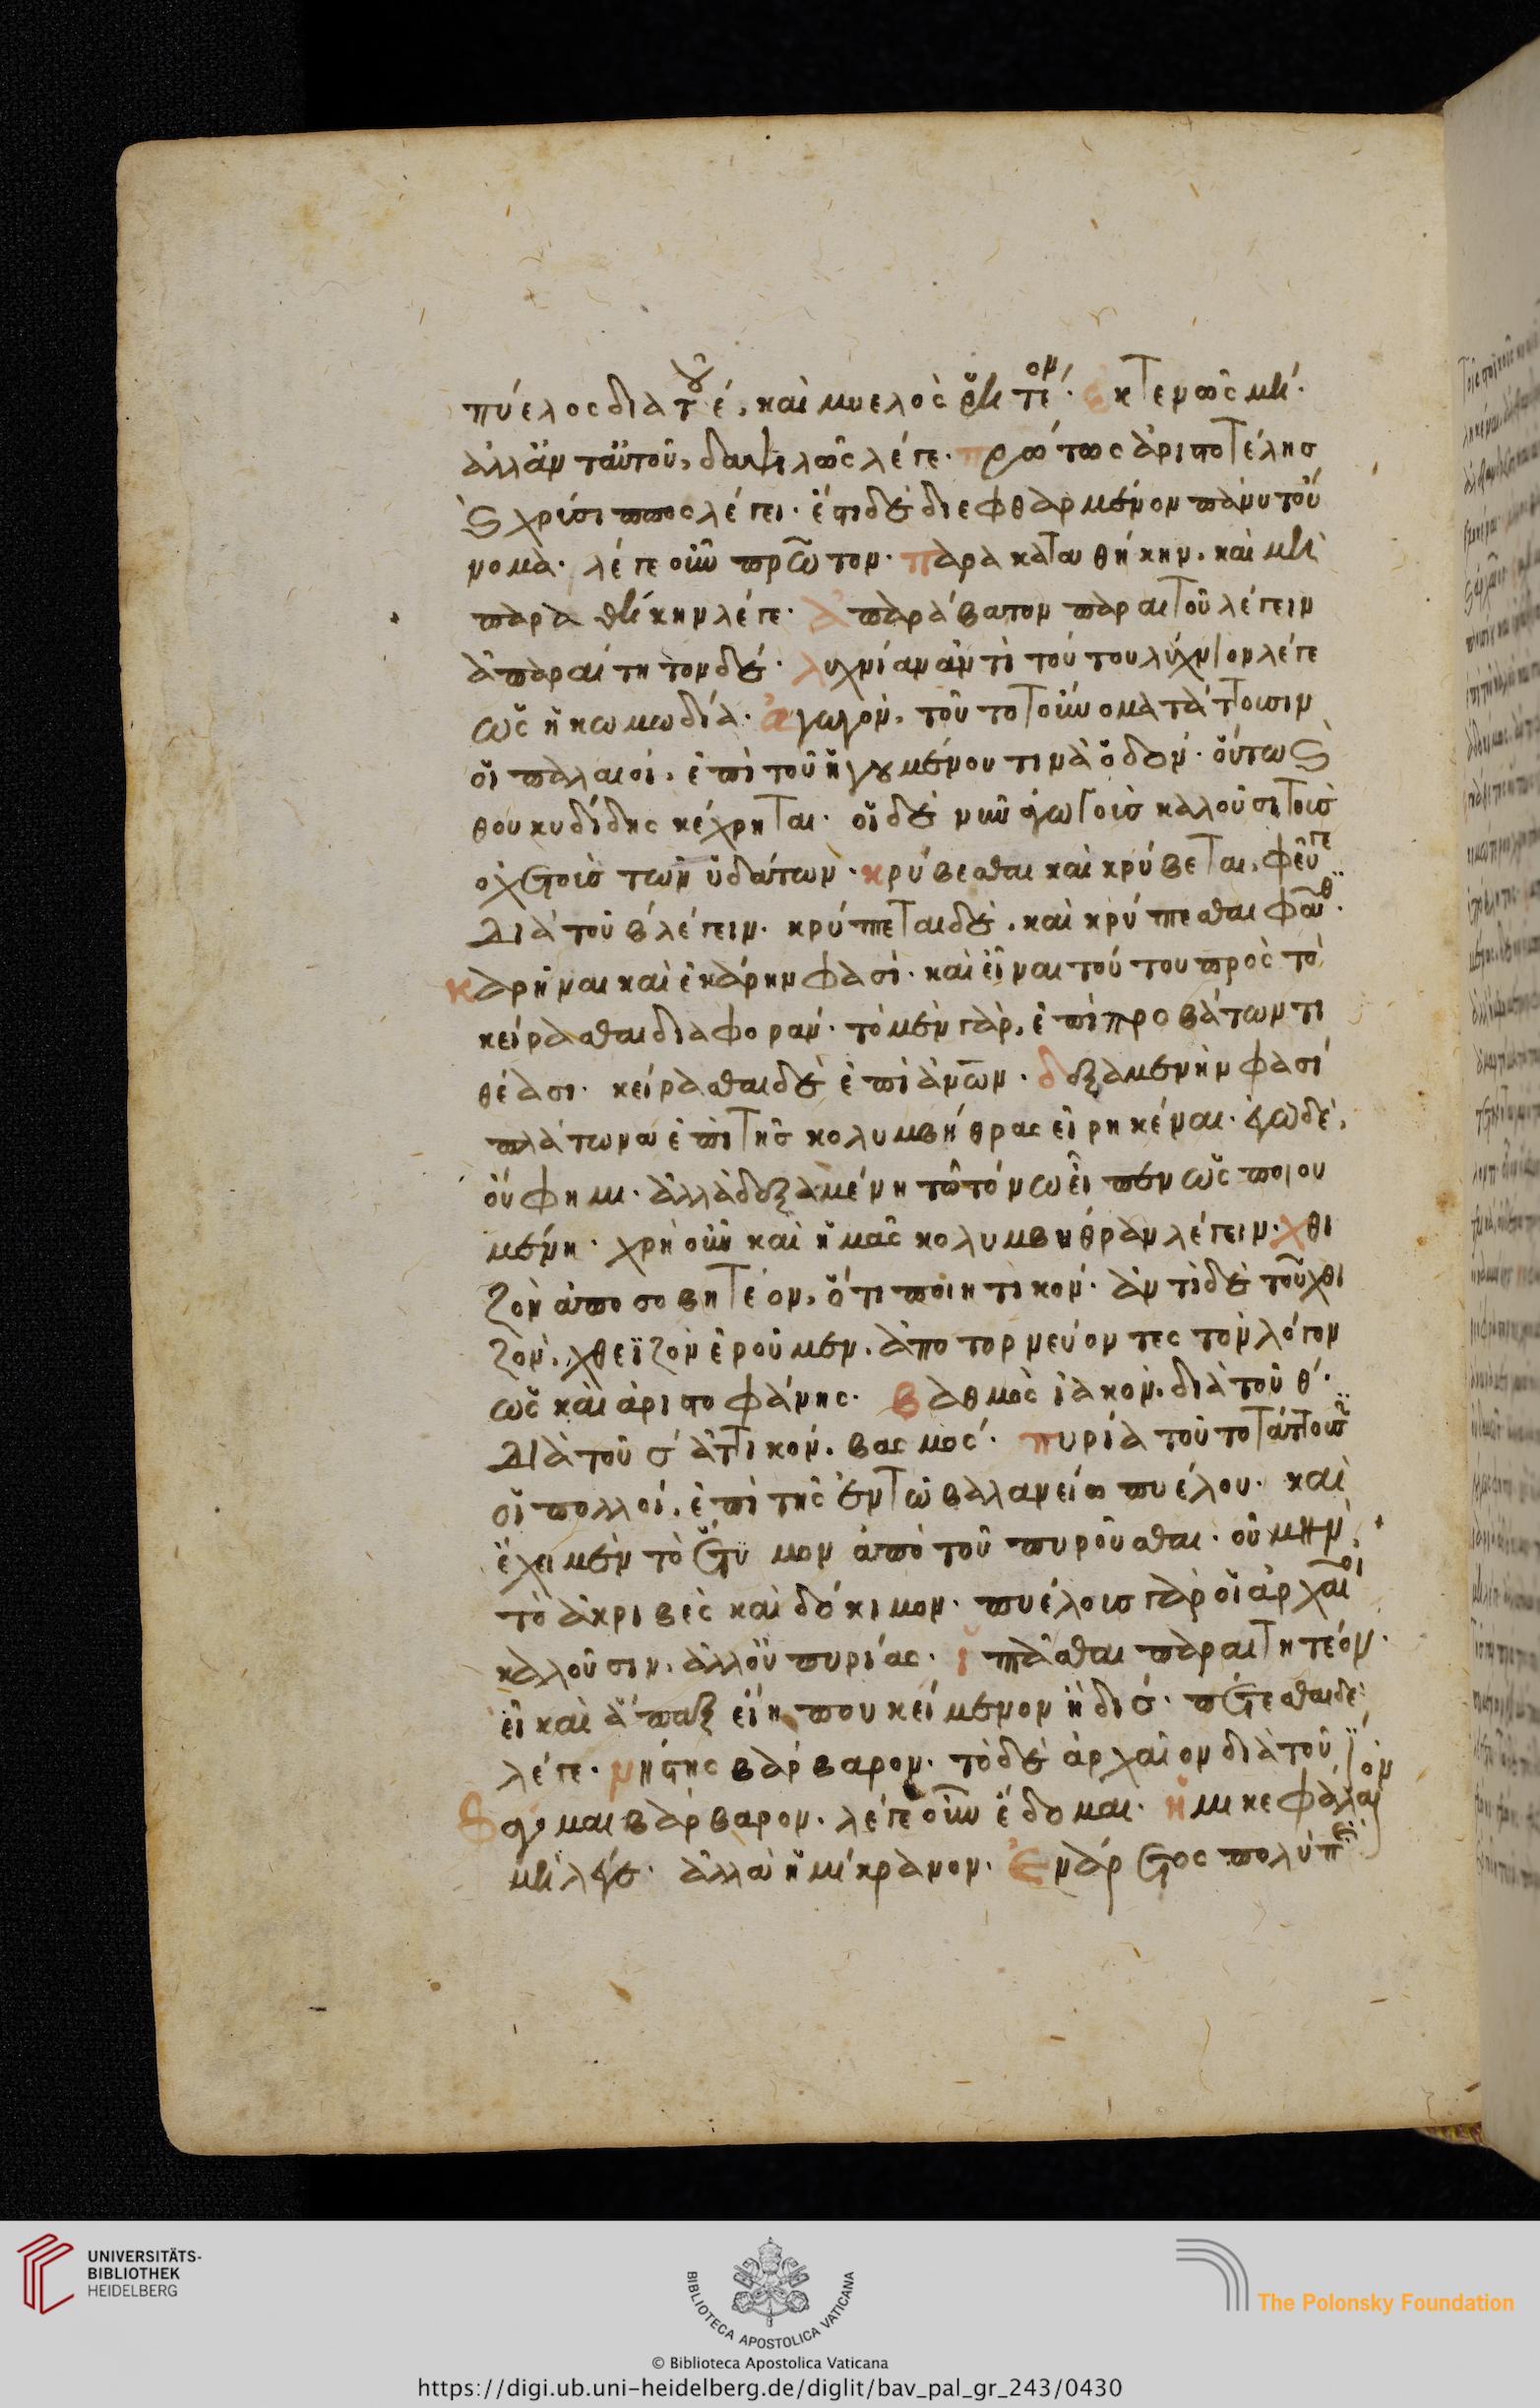 πύελος διὰ τοῦ ε, καὶ μυελὸς ῥητέον. ἐκτενῶς μή.
ἀλλ' ἀντ' αὐτοῦ, δαψιλῶς λέγε. πρώτως ἀριστοτέλησ
καὶ χρύσιππος λέγει. ἔστι δὲ διεφθαρμένον πάνυ τοὔ
νομα. λέγε οὖν πρῶτον. παρακαταθήκην. καὶ μὴ
παραθήκην λέγε. ἀπαράβατον παραιτοῦ λέγειν
ἀπαραίτητον δέ. λυχνίαν ἀντὶ τούτου λύχνιον λέγε
ὡς ἡ κωμωδία. ἀγωγόν. τοῦτο τοὔνομα τάττουσιν
οἱ παλαιοί. ἐπὶ τοῦ ἡγουμένου τινὰ ὁδόν. οὕτω καὶ
θουκυδίδης κέχρηται. οἱ δὲ νῦν τοὺς καλοῦσι τοὺς
ὀχετοὺς τῶν ὑδάτων. κρύβεσθαι καὶ κρύβεται, φεῦγε
διὰ τοῦ β λέγειν. κρύπτεται δὲ. καὶ κρύπτεσθαι φαθ.
καρῆναι καὶ ἐκάρην φασί. καὶ εἶναι τούτου πρὸς τὸ
κείρασθαι διαφοράν. τὸ μὲν γὰρ, ἐπὶ προβάτων τι
θέασι. κείρασθαι δὲ ἐπὶ ἀνων. δοξαμενὴν φασί
πλάτωνα ἐπὶ τῆς κολυμβήθρας εἰρηκέναι. ἐγὼ δὲ,
οὔ φημι. ἀλλὰ δοξαμένη τῶ τόνω εἶπεν ὡς ποιου
μένη. χρὴ οὖν καὶ ἡμᾶς κολυμβήθραν λέγειν. χθι
ζὸν ἀποσοβητέον, ὅτι ποιητικόν. ἀντὶ δὲ τοῦ χθι
ζὸν, χθεϊζὸν ἐροῦμεν. ἀποτορνεύοντες τὸν λόγον
ὡς καὶ ἀριστοφάνης. βαθμὸς ἰακόν. διὰ τοῦ θ.
διὰ τοῦ σ ἀττικόν. βασμός. πυρία τοῦτο τάττουσ
οἱ πολλοί. ἐπὶ τῆς ἐν τῶ βαλανείω πυέλου. καὶ
ἔχει μὲν τὸ ἔτυμον ἀπὸ τοῦ πυροῦσθαι. οὐ μὴν
τὸ ἀκριβὲς καὶ δόκιμον. πυέλους γὰρ οἱ ἀρχαῖοι
καλοῦσιν. ἀλλ' οὐ πυρίας. ἵπτασθαι παραιτητέον.
εἰ καὶ ἅπαξ εἴη που κείμενον ἢ δίς. πέτεσθαι δὲ
λέγε. νήστης βάρβαρον. τὸ δὲ ἀρχαῖον διὰ τοῦ ι
βάρβαρον. λέγε οὖν ἔδομαι. ἡμικεφάλαιον
μὴ λέγε. ἀλλὰ ἡμίκρανον. ἐνάρετος πολὺ π
UNIVERSITÄTS-
BIBLIOTHEK
HEIDELBERG
BIBLIOTECA APOSTOLICA VATICANA
The Polonsky Foundation
© Biblioteca Apostolica Vaticana
https://digi.ub.uni-heidelberg.de/diglit/bav_pal_gr_243/0430